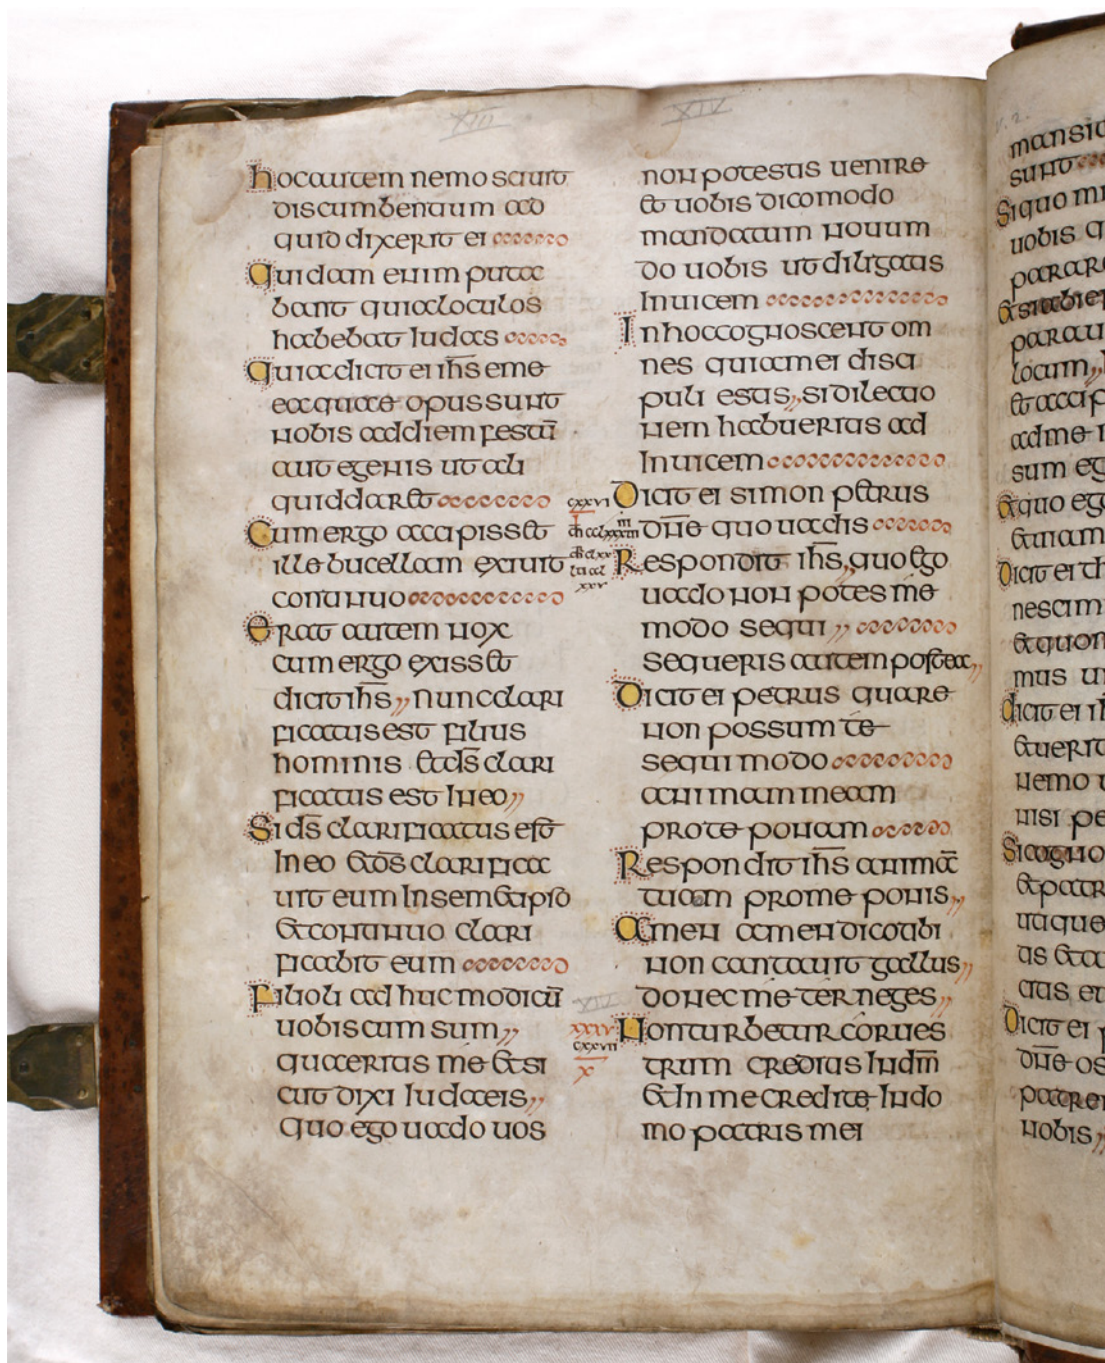 XIII
hocautem nemo sciuit
discumbentium ad
quid dixerit ei
Quidam enim puta
bant quia loculos
habebat Iudas
Quia dicit ei ihs eme
ea quae opus sunt
nobis ad diem festū
aut egenis ut ali
quid daret
Cum ergo accipisset
ille bucellam exiuit
continuo
Erat autem nox
cum ergo exisset
dicit ihs,, Nunc clari
ficatus est filius
hominis et ds clari
ficatus est In eo,,
Si ds clarificatus est
In eo et ds clarifica
uit eum In semetipso
et continuo clari
ficabit eum
Filioli ad huc modicū
uobiscum sum,,
quaeritis me et si
cut dixi Iudaeis,,
quo ego uado uos
XIV
non potestis uenire
et uobis dico modo
mandatum nouum
do uobis ut diligatis
Inuicem
In hoc cognoscent om
nes quia mei disci
puli estis,, si dilectio
nem habueritis ad
Inuicem
cxxvi Dicit ei simon petrus
dne quo uadis
Respondit ihs,, quo ego
uado non potes me
modo sequi,,
sequeris autem postea,,
Dicit ei petrus quare
non possum te
sequi modo
animam meam
pro te ponam
Respondit ihs animā
tuam pro me ponis,,
Amen amen dico tibi
non cantauit gallus,,
donec me ter neges,,
xxxv Non turbetur cor ues
cxxvii
x
trum creditis In dm
et In me credite In do
mo patris mei
mansio
sunt
Si quo mi
uobis
parare
parau
locum,,
et accip
ad me
sum eg
et quo ego
et uiam
Dicit ei th
nescim
et quom
mus ui
dicit ei ih
et uerit
nemo
nisi pe
Si cogno
et patr
utique
tis et co
Dicit ei
dne os
patrem
nobis,,